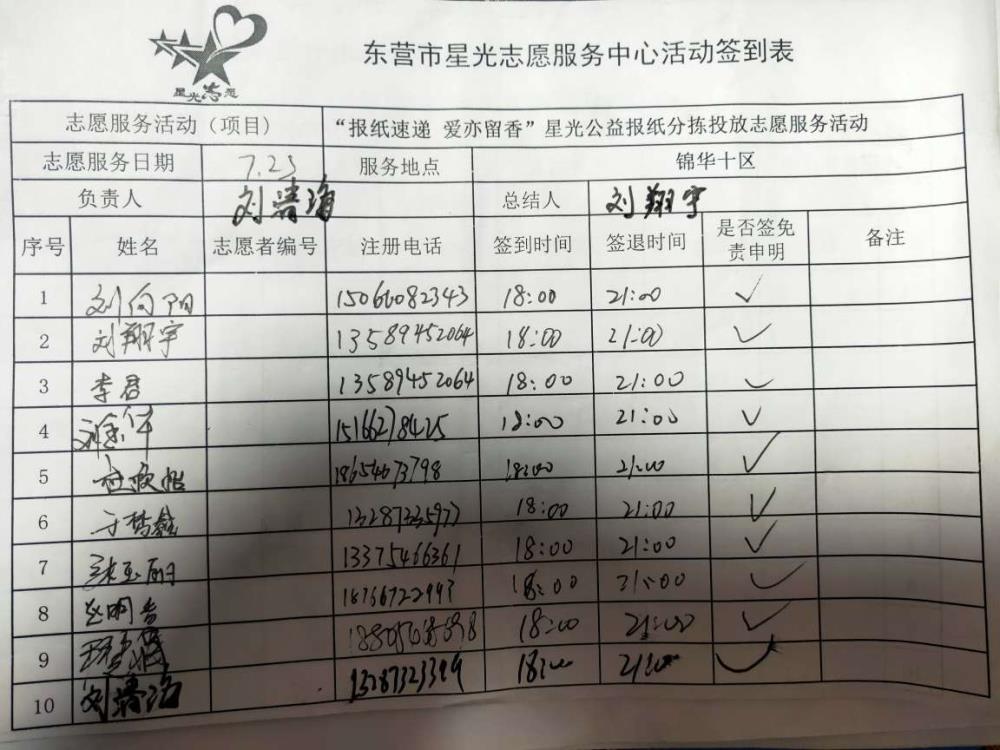 星光志愿
东营市星光志愿服务中心活动签到表
志愿服务活动（项目） “报纸速递 爱亦留香”星光公益报纸分拣投放志愿服务活动
志愿服务日期 7.23 服务地点 锦华十区
负责人 刘清海 总结人 刘翔宇
序号 姓名 志愿者编号 注册电话 签到时间 签退时间 是否签免责申明 备注
1 刘向阳 15066082343 18:00 21:00 ✓
2 刘翔宇 13589452064 18:00 21:00 ✓
3 李君 13589452064 18:00 21:00 ✓
4 15166278425 18:00 21:00 ✓
5 18654673798 18:00 21:00 ✓
6 18:00 21:00 ✓
7 13375466361 18:00 21:00 ✓
8 18766722993 18:00 21:00 ✓
9 18:00 21:00 ✓
10 刘清海 13287323399 18:00 21:00 ✓